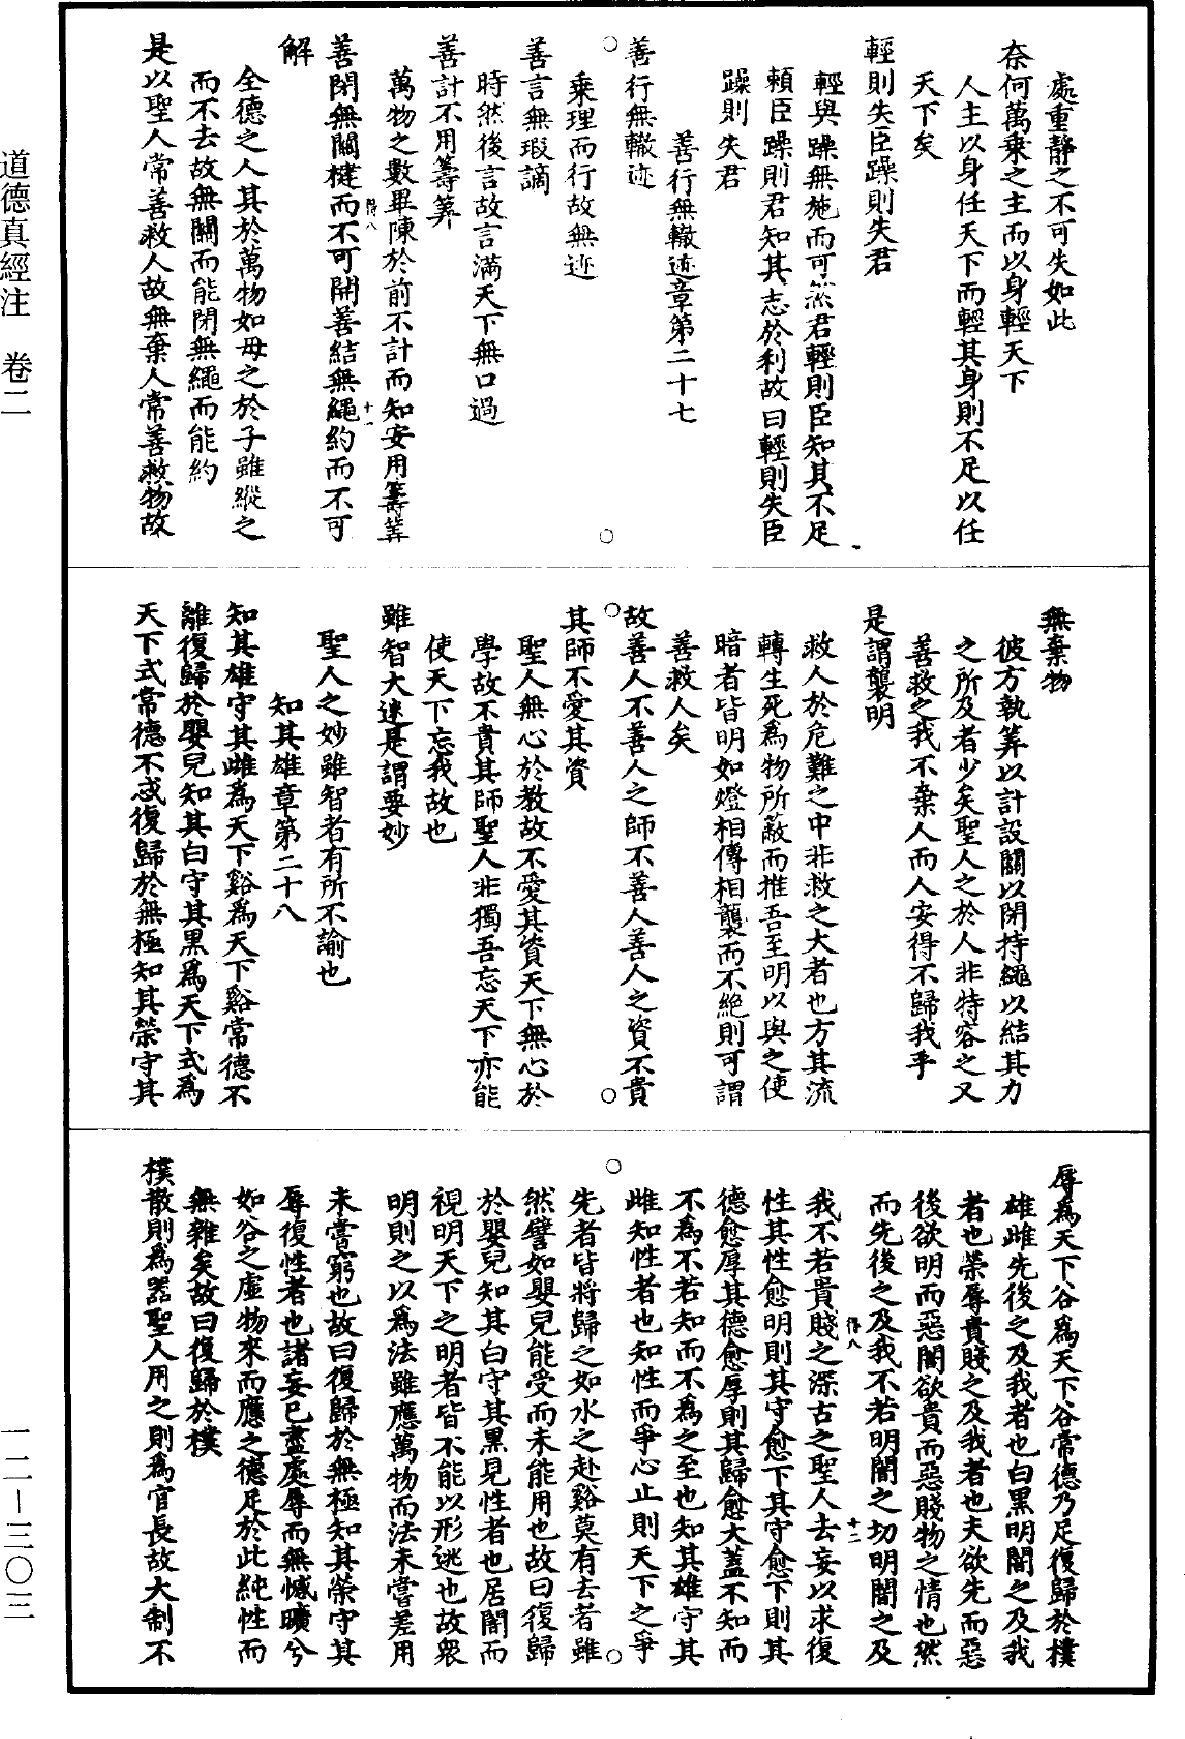 處重靜之不可失如此
奈何萬乘之主而以身輕天下
人主以身任天下而輕其身則不足以任
天下矣
輕則失臣躁則失君
輕與躁無施而可然君輕則臣知其不足
賴臣躁則君知其志於利故曰輕則失臣
躁則失君
善行無轍迹章第二十七
善行無轍迹
乘理而行故無迹
善言無瑕謫
時然後言故言滿天下無口過
善計不用籌筭
萬物之數畢陳於前不計而知安用籌筭
善閉無關楗而不可開善結無繩約而不可
得八 十一
解
全德之人其於萬物如母之於子雖縱之
而不去故無關而能閉無繩而能約
是以聖人常善救人故無棄人常善救物故
無棄物
彼方執筭以計設關以閉持繩以結其力
之所及者少矣聖人之於人非特容之又
善救之我不棄人而人安得不歸我乎
是謂襲明
救人於危難之中非救之大者也方其流
轉生死為物所蔽而推吾至明以與之使
暗者皆明如燈相傳相襲而不絕則可謂
善救人矣
故善人不善人之師不善人善人之資不貴
其師不愛其資
聖人無心於教故不愛其資天下無心於
學故不貴其師聖人非獨吾忘天下亦能
使天下忘我故也
雖智大迷是謂要妙
聖人之妙雖智者有所不諭也
知其雄章第二十八
知其雄守其雌為天下谿為天下谿常德不
離復歸於嬰兒知其白守其黑為天下式為
天下式常德不忒復歸於無極知其榮守其
辱為天下谷為天下谷常德乃足復歸於樸
雄雌先後之及我者也白黑明闇之及我
者也榮辱貴賤之及我者也夫欲先而惡
後欲明而惡闇欲貴而惡賤物之情也然
而先後之及我不若明闇之切明闇之及
我不若貴賤之深古之聖人去妄以求復
得八 十二
性其性愈明則其守愈下其守愈下則其
德愈厚其德愈厚則其歸愈大蓋不知而
不為不若知而不為之至也知其雄守其
雌知性者也知性而爭心止則天下之爭
先者皆將歸之如水之赴谿莫有去者雖
然譬如嬰兒能受而未能用也故曰復歸
於嬰兒知其白守其黑見性者也居闇而
視明天下之明者皆不能以形逃也故眾
明則之以為法雖應萬物而法未嘗差用
未嘗窮也故曰復歸於無極知其榮守其
辱復性者也諸妄已盡處辱而無憾曠兮
如谷之虛物來而應之德足於此純性而
無雜矣故曰復歸於樸
樸散則為器聖人用之則為官長故大制不
道德真經注 卷二
一二—三〇三